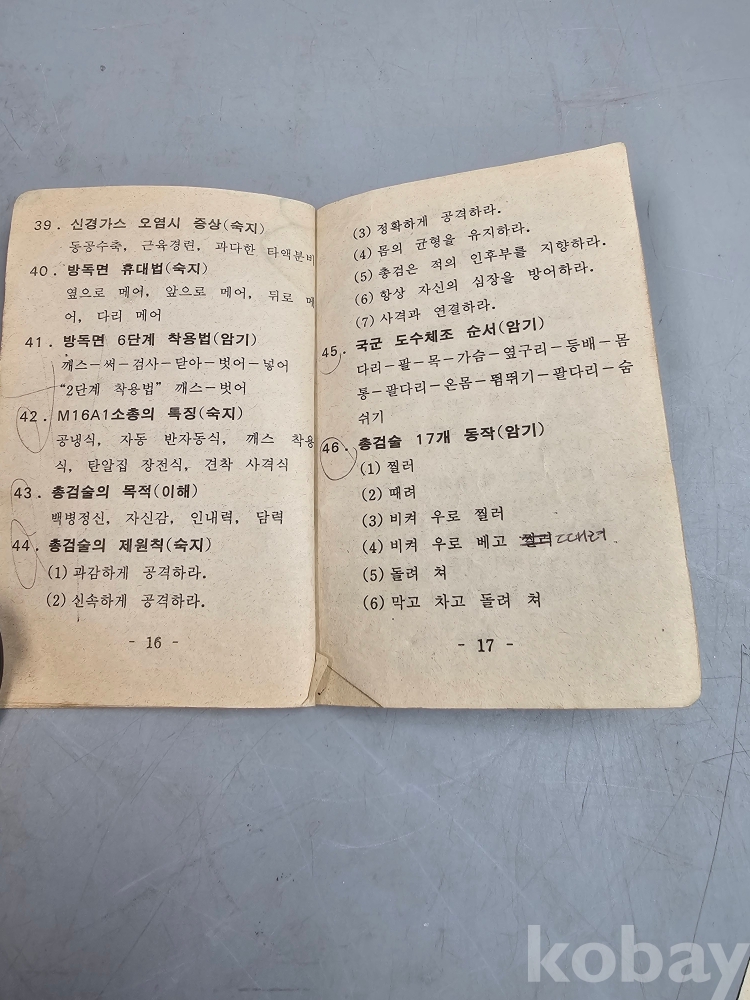 39. 신경가스 오염시 증상(숙지)
동공수축, 근육경련, 과다한 타액분비
40. 방독면 휴대법(숙지)
옆으로 메어, 앞으로 메어, 뒤로 메
어, 다리 메어
41. 방독면 6단계 착용법(암기)
깨스-써-검사-닫아-벗어-넣어
"2단계 착용법" 깨스-벗어
42. M16A1소총의 특징(숙지)
공냉식, 자동 반자동식, 깨스 착용
식, 탄알집 장전식, 견착 사격식
43. 총검술의 목적(이해)
백병정신, 자신감, 인내력, 담력
44. 총검술의 제원칙(숙지)
(1) 과감하게 공격하라.
(2) 신속하게 공격하라.
- 16 -
(3) 정확하게 공격하라.
(4) 몸의 균형을 유지하라.
(5) 총검은 적의 인후부를 지향하라.
(6) 항상 자신의 심장을 방어하라.
(7) 사격과 연결하라.
45. 국군 도수체조 순서(암기)
다리-팔-목-가슴-옆구리-등배-몸
통-팔다리-온몸-뜀뛰기-팔다리-숨
쉬기
46. 총검술 17개 동작(암기)
(1) 찔러
(2) 때려
(3) 비켜 우로 찔러
(4) 비켜 우로 베고 찔러 때려
(5) 돌려 쳐
(6) 막고 차고 돌려 쳐
- 17 -
kobay